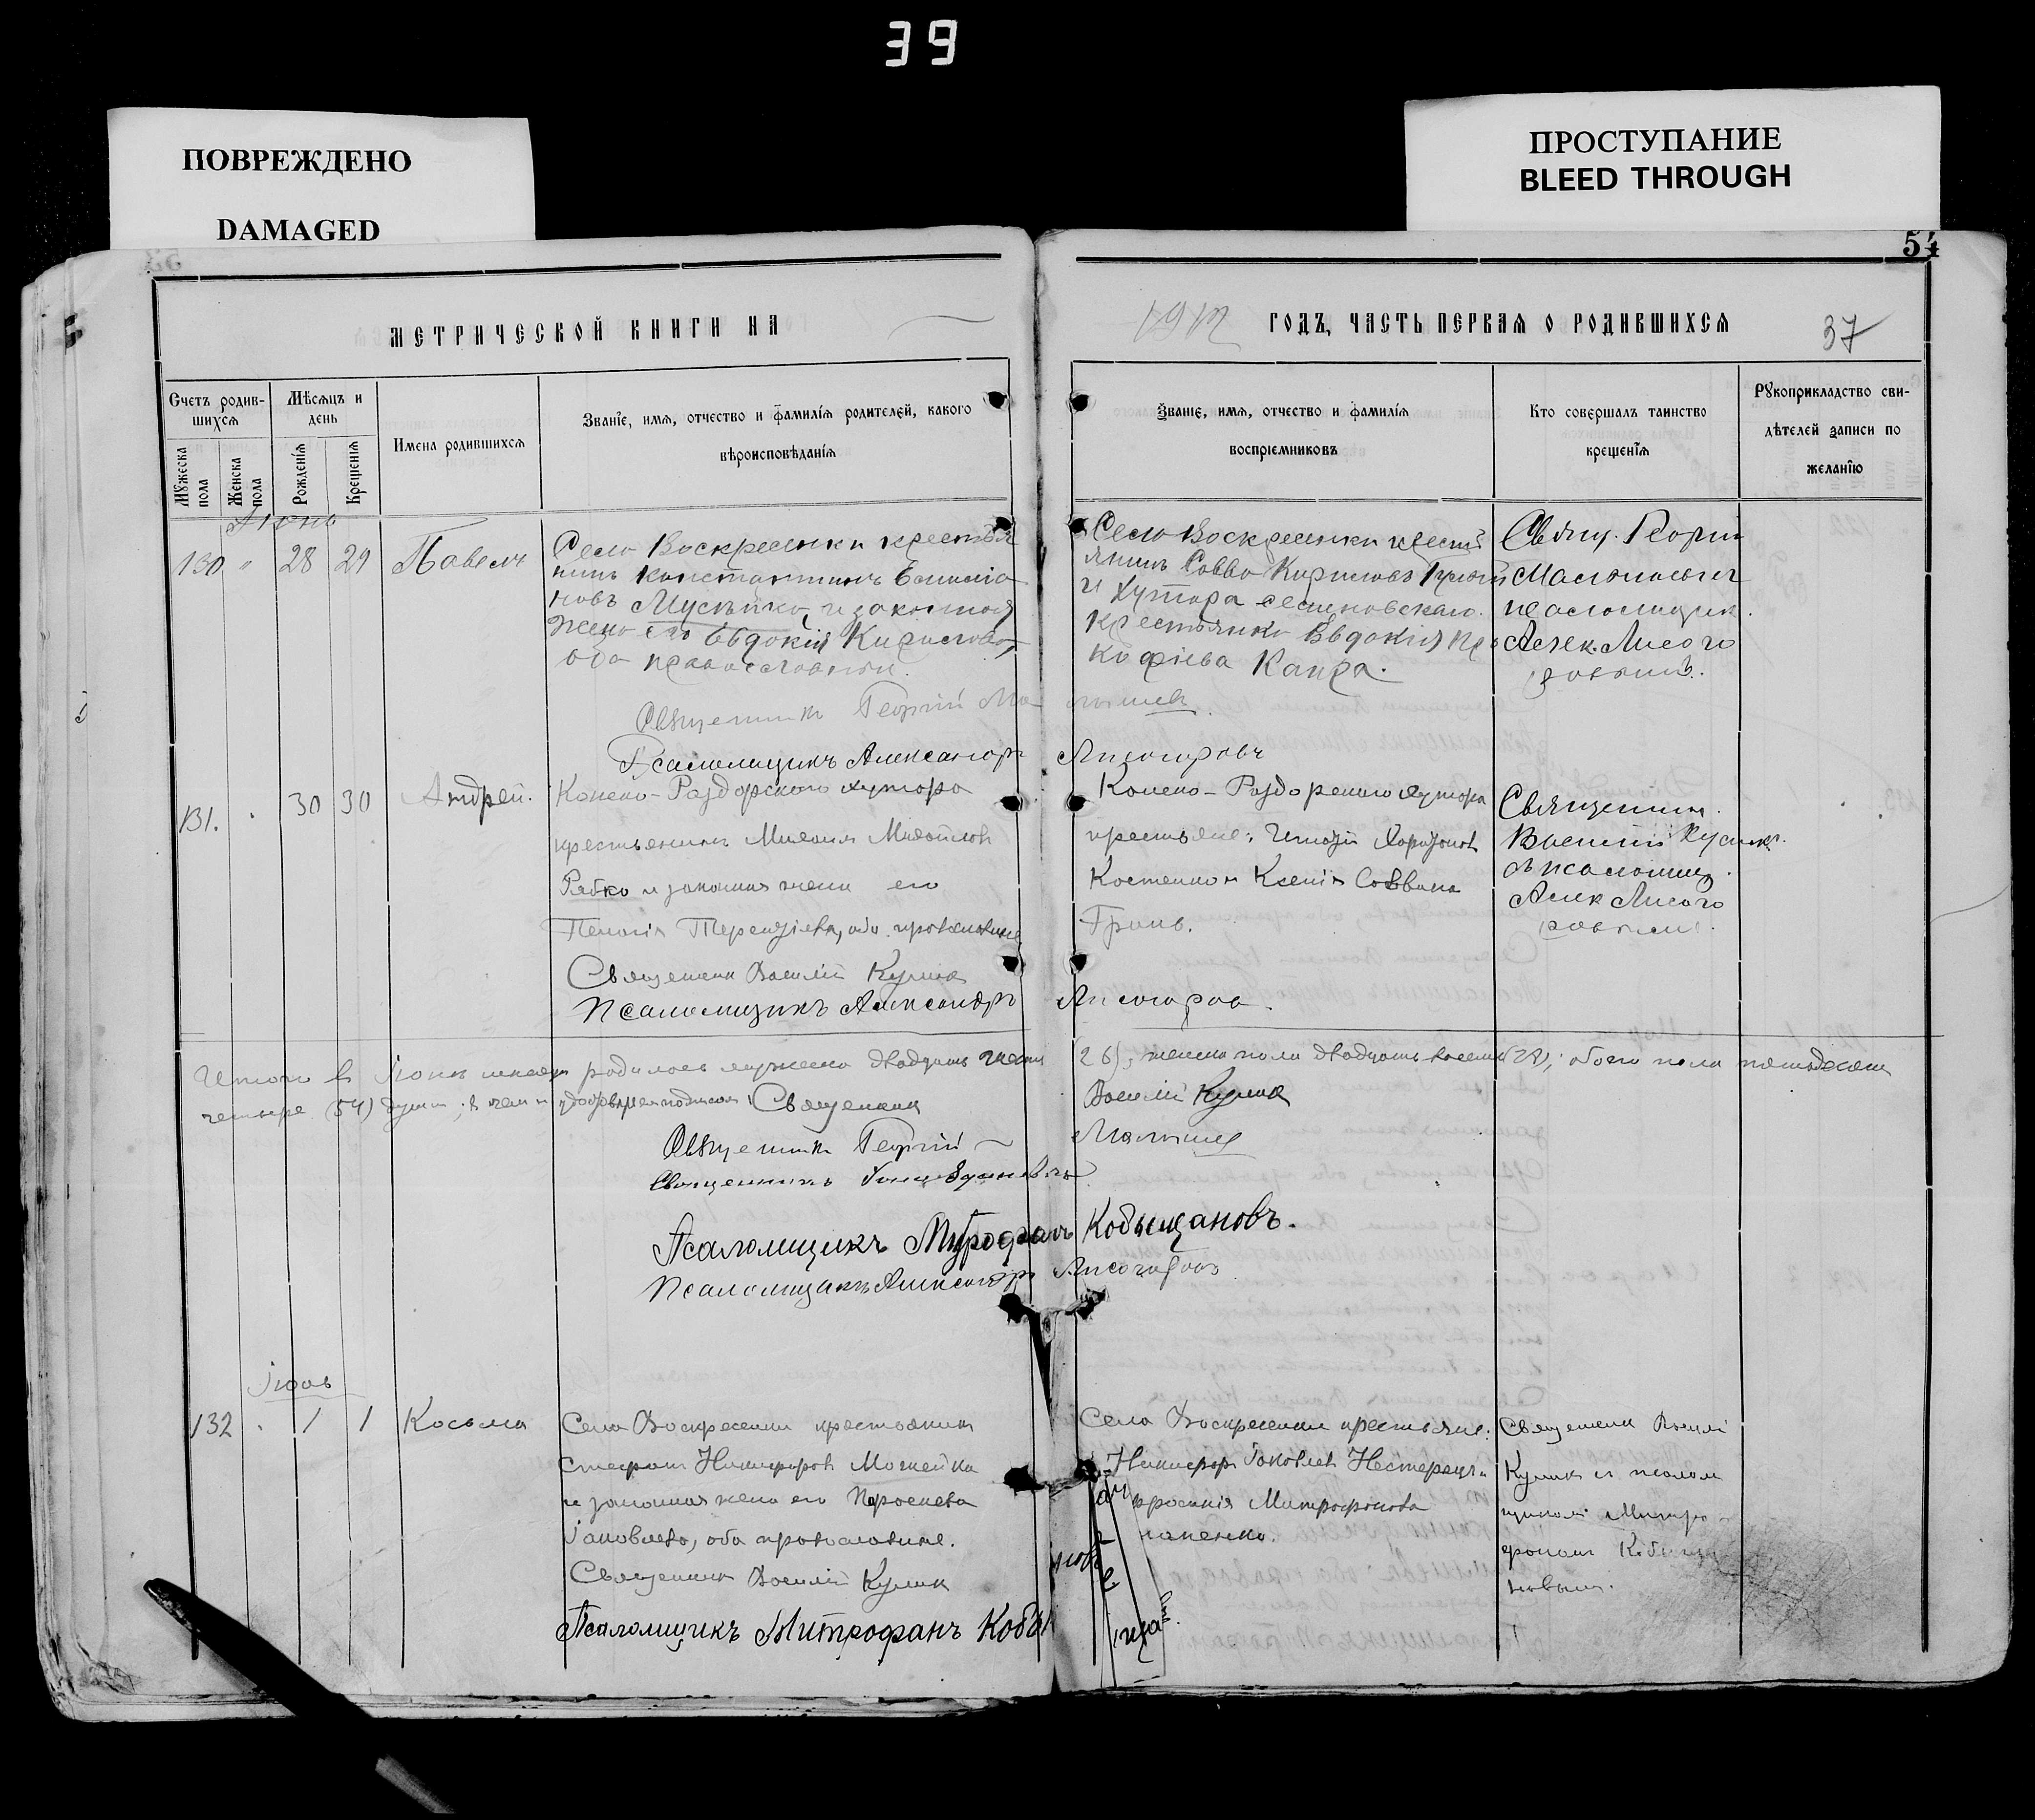 39
ПОВРЕЖДЕНО
DAMAGED
ПРОСТУПАНИЕ
BLEED THROUGH
54
МЕТРИЧЕСКОЙ КНИГИ НА
1912 ГОДЪ, ЧАСТЬ ПЕРВАЯ О РОДИВШИХСЯ
37
Счетъ родив-
шихся
Мужеска пола
Женска пола
Мѣсяцъ и
день
Рожденія
Крещенія
Имена родившихся
Званіе, имя, отчество и фамилія родителей, какого
вѣроисповѣданія
Званіе, имя, отчество и фамилія
воспріемниковъ
Кто совершалъ таинство
крещенія
Рукоприкладство сви-
дѣтелей записи по
желанію
Іюнь
130 " 28 29 Павелъ
Село Воскресенки крестья
нинъ Константинъ
новъ и законная
жена его Евдокія Кирилова,
оба православные.
Село Воскресенки крестья
янинъ Савва Кириловъ
и Хутора Семеновскаго
крестьянка Евдокія Про
кофіева Капра.
Свящ. Георгій
псаломщик.
Алек. Лисого
ровымъ.
Священникъ Георгій Малышев
Псаломщикъ Александръ Лисогоровъ
131. 30 30 Андрей.
Конско-Раздорскаго хутора
крестьянинъ Михаилъ Михайлов
Рябко и законная жена его
Пелагія Терентіева, оба православные
Конско-Раздорскаго хутора
крестьяне: Игнатій Харитонов
Костенко и Ксенія Саввина
Гринь.
Священник
Василій Кулик.
съ псаломщ.
Алек Лисого
ровымъ.
Священник Василій Кулик
Псаломщикъ Александръ Лисогоров.
Итого в Іюнѣ мѣсяцѣ родилось мужеска двадцать шесть (26), женска пола двадцать восемь (28), обоего пола пятьдесят
четыре (54) души; в чем и удостовѣряем подписом Священник Василій Кулик
Священникъ Георгій Малышев
Священникъ
Псаломщикъ Митрофанъ Кобыщановъ.
Псаломщикъ Александръ Лисогоровъ
Іюль
132 1 1 Косьма
Села Воскресенки крестьянин
Стефан Никифоров Мотейка
и законная жена его Параскева
Іаковлева, оба православные.
Села Воскресенки крестьяне:
Никифор Іаковлев Нестеренко и
Митрофанова
Священник Василій
Кулик и псалом
щиком Митро
фаном Кобыща
новым.
Священник Василій Кулик
Псаломщикъ Митрофанъ Кобы